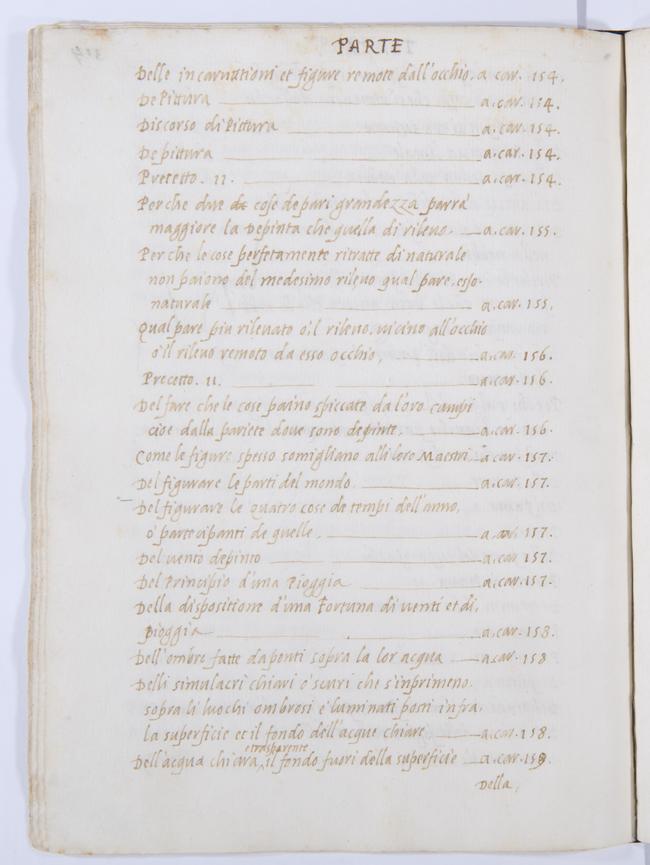 PARTE
Delle incarnationi et figure remote dall'occhio. a car. 154.
De Pittura a. car. 154.
Discorso di Pittura a. car. 154.
De pittura a. car. 154.
Precetto. 11. a. car. 154.
Perche due de cose de pari grandezza parra
maggiore la Depinta che quella di rilevo. a. car. 155.
Perche le cose perfetamente ritratte di naturale
non paiono del medesimo rilevo qual pare. esso.
naturale a. car. 155.
Qual pare piu rilevato o'il rilevo. vicino all'occhio
o'il rilevo remoto da esso occhio. a. car. 156.
Precetto. 11. a. car. 156.
Del fare che le cose paino spiccate da loro campi
cioe dalla pariete dove sono depinte. a. car. 156.
Come le figure spesso somigliano alli loro Maestri a. car. 157.
Del figurare le parti del mondo. a. car. 157.
Del figurare le quatro cose de tempi dell'anno.
o' partecipanti de quelle. a. car. 157.
Del vento depinto a. car. 157.
Del Principio d'una Pioggia a. car. 157.
Della dispositione d'una Fortuna di venti et di.
pioggia a. car. 158.
Dell'ombre fatte da ponti sopra la lor acqua a. car. 158
Delli simulacri chiari o'scuri che s'inprimeno.
sopra li luochi ombrosi e luminati posti infra.
la superficie et il fondo dell'acque chiare a. car. 158.
Dell'acqua chiara, e trasparente il fondo fuori della superficie a. car. 159
Della,